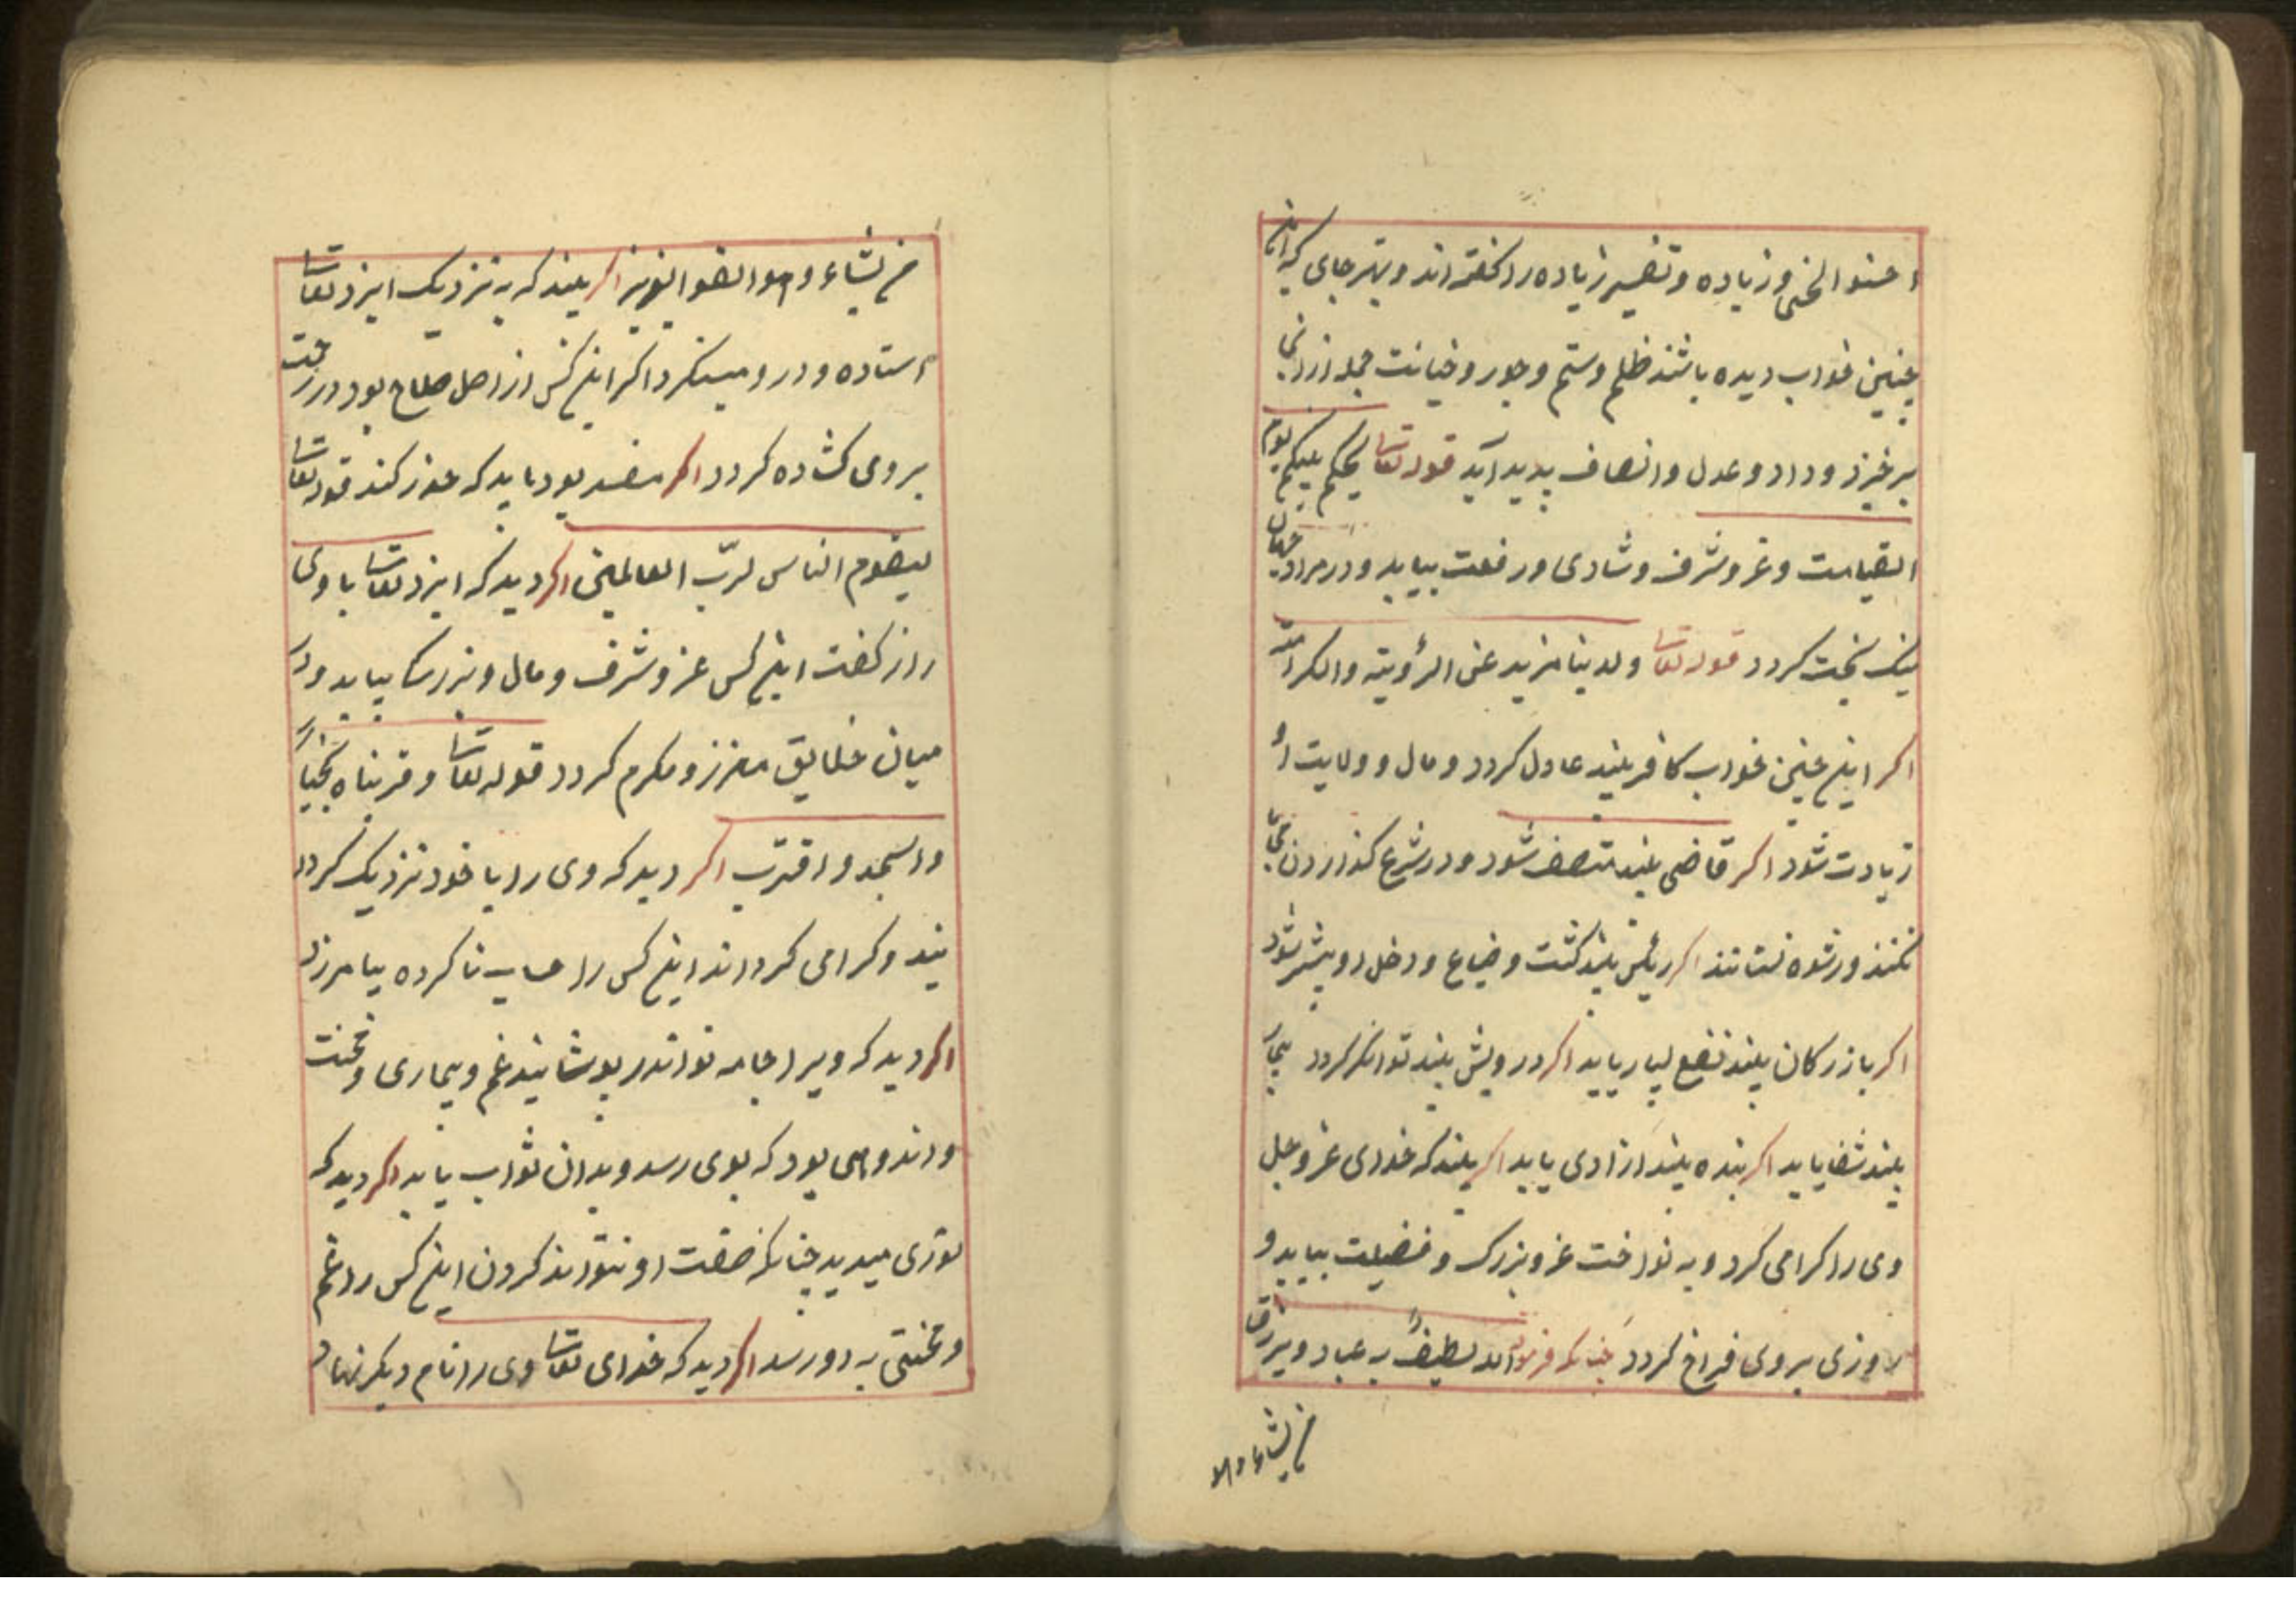 احسنوا الحسنی و زیاده و تفسیر زیاده را گفته اند و بهتر جای که این
چنین خواب دیده باشند ظلم و ستم و جور و خیانت جمله از آنجا
برخیزد و داد و عدل و انصاف پدید آید قوله تعالی یحکم بینکم یوم
القیامت و عز و شرف و شادی و رفعت بیابد و در مراد جهان
نیک بخت کردد قوله تعالی ولدینا مزید عنی الرؤیته والکرامته
اکر این چنین خواب کافر بیند عادل کردد و مال و ولایت او
زیادت شود اکر قاضی بیند منصف شود و در شرع کذاردن
نکند و رشوه نستاند اکر رئیس بیند کشت و ضیاع و دخل او بیشتر شود
اکر بازرکان بیند نفع بسیار یابد اکر درویش بیند توانکر کردد بیمار
بیند شفا یابد اکر بنده بیند ازادی یابد اکر بیند که خدای عز و جل
وی را کرامی کرد و به نواخت عز و بزرک و فضیلت بیابد و
روزی بر وی فراخ کردد چنانکه فرمود الله لطیفٌ به عباد ویرزق
من یشاء وهو
من یشاء وهو القوالعزیز اکر بیند که به نزدیک ایزد تعالی
استاده و در و مینکرد اکر این کس از اهل صلاح بود در رحمت
بر وی کشاده کردد اکر مفسد بود باید که عذر کند قوله تعالی
لیقوم الناس لربّ العالمین اکر دید که ایزد تعالی با وی
راز کفت این کس عز و شرف و مال و بزرکی بیابد و در
میان خلایق معزز و مکرم کردد قوله تعالی و قربناه نجیاً
واسجد و اقترب اکر دید که وی را با خود نزدیک کردا
نید و کرامی کرداند این کس را حساب ناکرده بیامرزد
اکر دید که ویرا جامه نو اندر پوشانید غم و بیماری و محنت
و اندوهی بود که بوی رسد و بدان ثواب یابد اکر دید که
نوری میدید چنانکه صفت او نتواند کردن این کس را غم
و محنتی به دو رسد اکر دید که خدای تعالی وی را نام دیکر نهاد